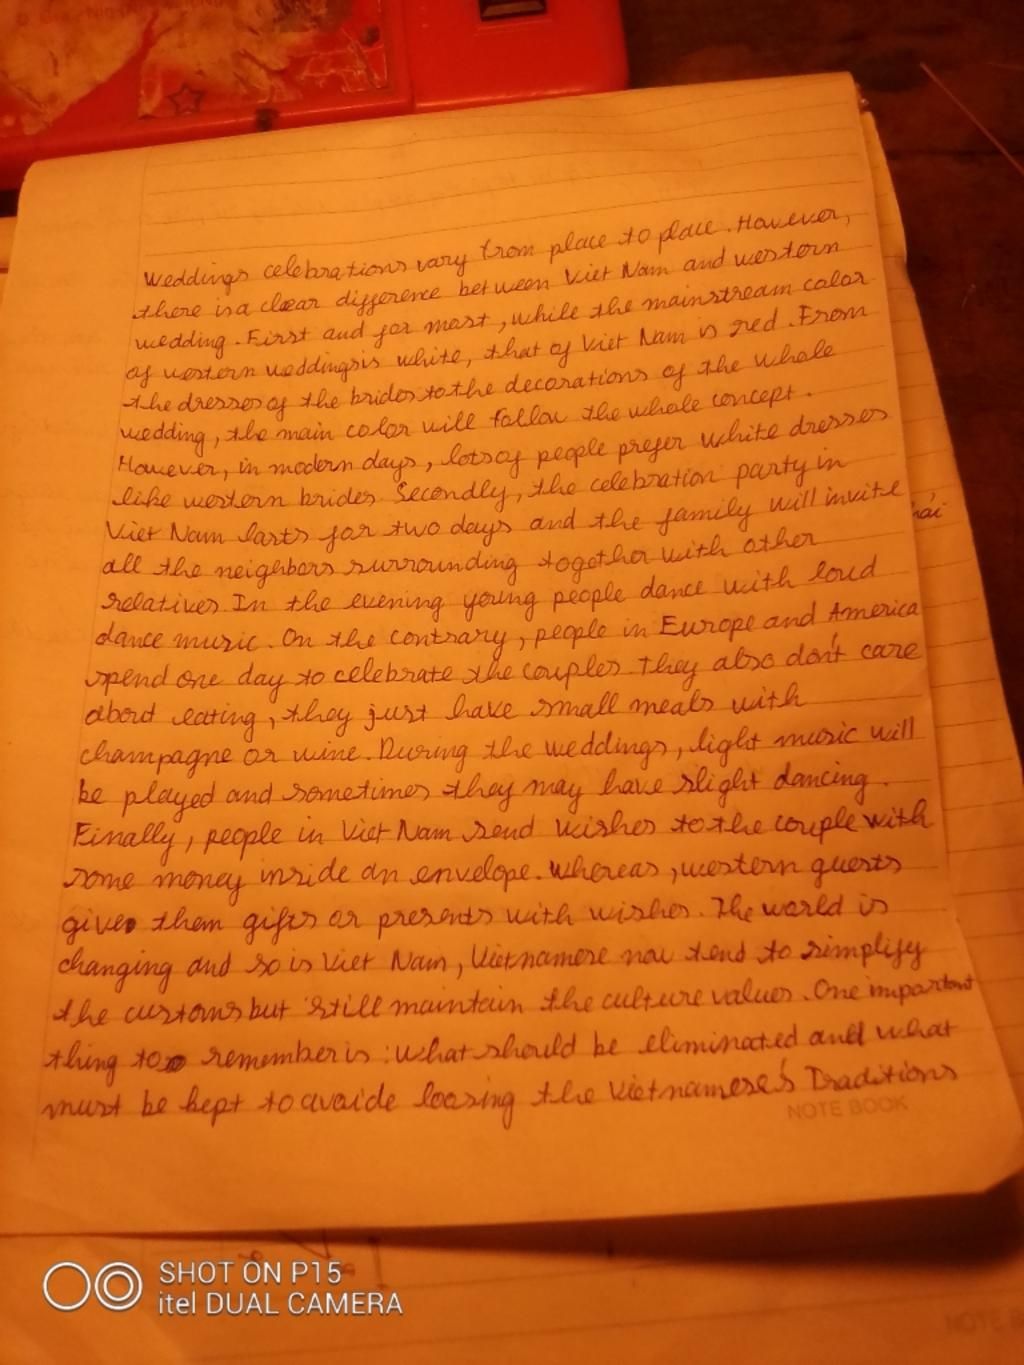 Weddings celebrations vary from place to place. However,
there is a clear difference between Viet Nam and western
wedding. First and for most, while the mainstream color
of western weddings is white, that of Viet Nam is red. From
the dresses of the brides to the decorations of the whole
wedding, the main color will follow the whole concept.
However, in modern days, lots of people prefer white dresses
like western brides. Secondly, the celebration party in
Viet Nam lasts for two days and the family will invite
all the neighbors surrounding together with other
relatives. In the evening young people dance with loud
dance music. On the contrary, people in Europe and America
spend one day to celebrate the couples. They also don't care
about eating, they just have small meals with
champagne or wine. During the weddings, light music will
be played and sometimes they may have slight dancing.
Finally, people in Viet Nam send wishes to the couple with
some money inside an envelope. Whereas, western guests
give them gifts or presents with wishes. The world is
changing and so is Viet Nam, Vietnamese now tend to simplify
the customs but still maintain the culture values. One important
thing to remember is: what should be eliminated and what
must be kept to avoide loosing the Vietnamese's Traditions
NOTE BOOK
SHOT ON P15
itel DUAL CAMERA